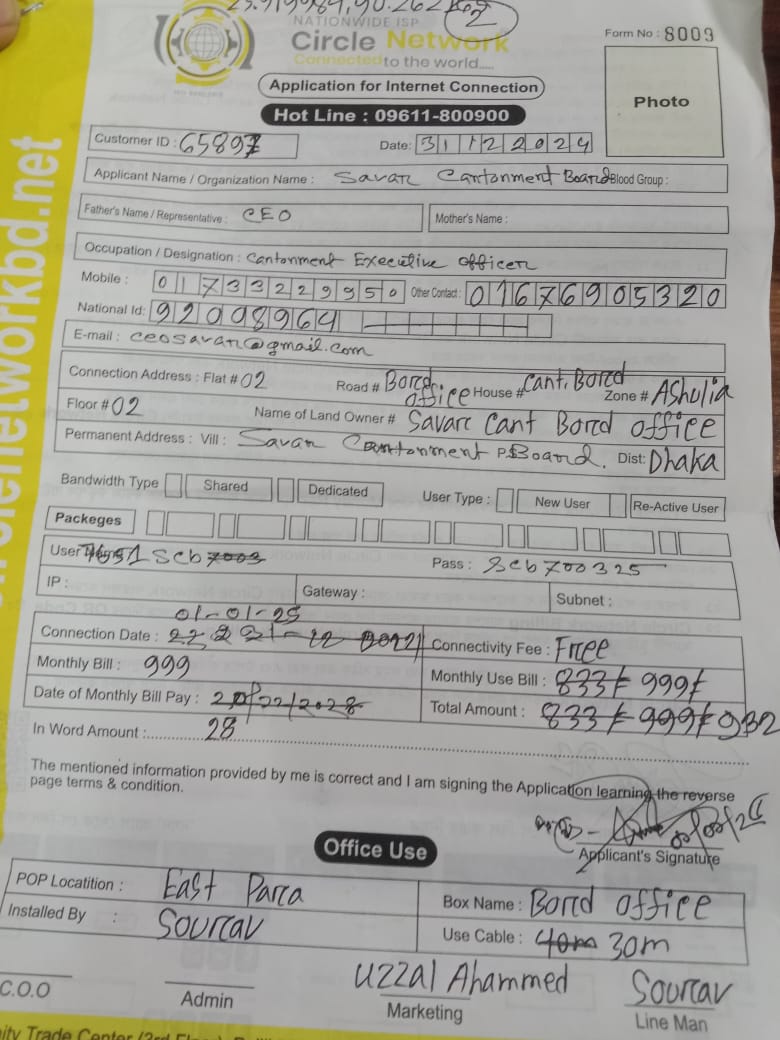 23.919984, 90.262
2
NATIONWIDE ISP
Circle Network
Connected to the world.....
Form No : 8009
Application for Internet Connection
Hot Line : 09611-800900
Photo
Customer ID : 65897
Date: 31 12 2024
Applicant Name / Organization Name : Savar Cantonment Board Blood Group :
Father's Name / Representative : CEO
Mother's Name :
Occupation / Designation : Cantonment Executive Officer
Mobile : 01733229950 Other Contact : 01676905320
National Id: 92098964
E-mail : ceosavar@gmail.com
Connection Address : Flat # 02 Road # Bord office House # Cant, Bord Zone # Ashulia
Floor # 02 Name of Land Owner # Savar Cant Bord office
Permanent Address : Vill : Savar Cantonment P.S Board. Dist: Dhaka
Bandwidth Type Shared Dedicated User Type : New User Re-Active User
Packeges
User Scb7003 Pass : Scb700325
IP : Gateway : Subnet :
01-01-25
Connection Date : Connectivity Fee : Free
Monthly Bill : 999 Monthly Use Bill : 833/= 999/-
Date of Monthly Bill Pay : Total Amount : 833/= 999/- 932
28
In Word Amount :
The mentioned information provided by me is correct and I am signing the Application learning the reverse
page terms & condition.
Applicant's Signature
Office Use
POP Locatition : East Para Box Name : Bord office
Installed By : Sourav Use Cable : 40m 30m
C.O.O
Admin
Uzzal Ahammed
Marketing
Sourav
Line Man
networkbd.net